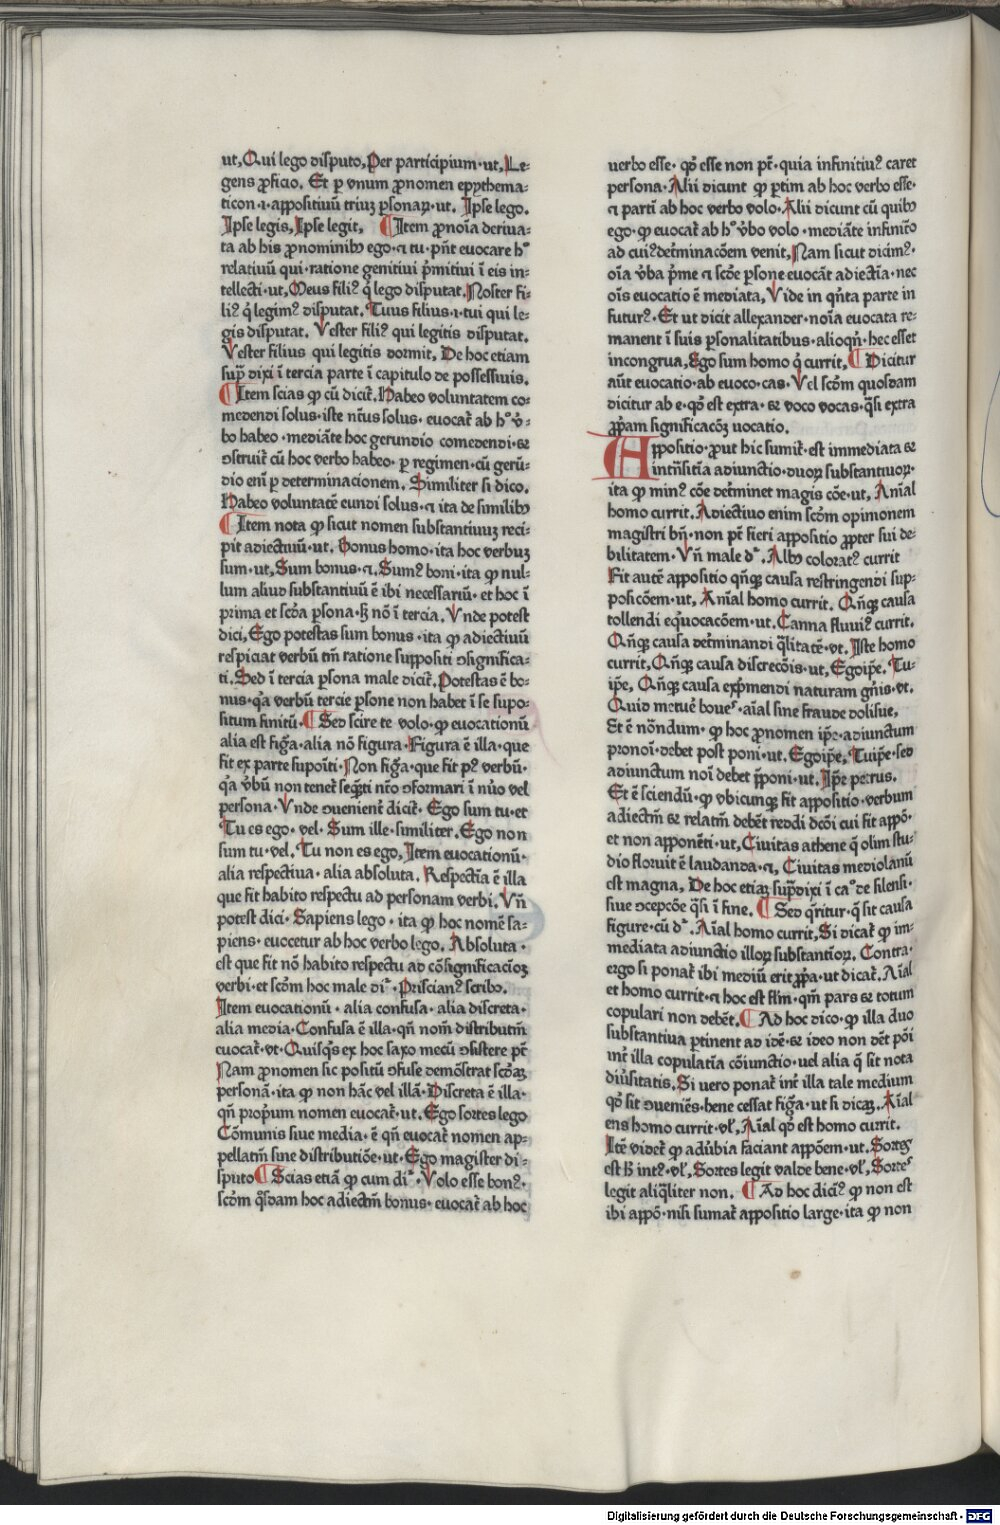 ut, Qui lego disputo, Per participium·ut, Le⸗
gens ꝓficio. Et ꝑ vnum ꝓnomen epythema⸗
ticon·i·appositiuũ triuʒ ꝑsonaꝝ·ut. Ipse lego.
Ipse legis, Ipse legit, ¶ Item ꝓnoĩa deriua⸗
ta ab his ꝓnominibꝰ ego·⁊ tu·pñt euocare hᵒ
relatiuũ qui·ratione genitiui pͥmitiui ĩ eis in⸗
tellecti·ut, Meus filiꝰ q̇ lego disputat. Noster fi⸗
liꝰ q̇ legimꝰ disputat. Tuus filius·i·tui qui le⸗
gis disputat. Vester filiꝰ qui legitis disputat.
Vester filius qui legitis dormit, De hoc etiam
supͣ dixi ĩ tercia parte ĩ capitulo de possessiuis.
¶ Item scias ꝙ cũ dicit̃. Habeo voluntatem co⸗
medendi solus·iste nt̃us solus·euocat̃ ab hᵒ v̾⸗
bo habeo·mediãte hoc gerundio comedendi·⁊
ↄstruit̃ cũ hoc verbo habeo·ꝑ regimen·cũ gerũ⸗
dio eni᷒ ꝑ determinacionem. Similiter si dico.
Habeo voluntatẽ eundi solus·⁊ ita de similibꝰ
¶ Item nota ꝙ sicut nomen substantiuuʒ reci⸗
pit adiectiuũ·ut. Bonus homo·ita hoc verbuʒ
sum·ut, Sum bonus·⁊. Sumꝰ boni·ita ꝙ nul⸗
lum aliud substantiuũ ẽ ibi necessariũ·et hoc ĩ
prima et scd̃a ꝑsona·sʒ nõ ĩ tercia. Vnde potest
dici, Ego potestas sum bonus·ita ꝙ adiectiuũ
respiciat verbũ tm̃ ratione suppositi ↄsignifica⸗
ti. Sed ĩ tercia ꝑsona male dicit̃. Potestas ẽ bo⸗
nus·qͣ verbũ tercie ꝑsone non habet ĩ se supo⸗
situm finitũ. ¶ Sed scire te volo·ꝙ euocationũ
alia est figͣa·alia nõ figura·Figura ẽ illa·que
fit ex parte supoĩti·Non figͣa·que fit pꝰ verbũ·
qͣ v̾bũ non tenet̃ seq̃ti nt̃o ↄformari ĩ nũo vel
persona·Vnde ↄuenient̃ dicit̃·Ego sum tu·et
Tu es ego·vel·Sum ille·similiter·Ego non
sum tu·vel, Tu non es ego, Item euocationũ·
alia respectiua·alia absoluta. Respectĩa ẽ illa
que fit habito respectu ad personam verbi. Vñ
potest dici·Sapiens lego·ita ꝙ hoc nomẽ sa⸗
piens·euocetur ab hoc verbo lego. Absoluta·
est que fit nõ habito respectu ad cõsignificacõʒ
verbi·et scd̃m hoc male diͬ·Priscianꝰ scribo.
Item euocationũ·alia confusa·alia discreta·
alia media·Confusa ẽ illa·qñ nom̃ distributm̃
euocat̃·vt·Quisq̇s ex hoc saxo mecũ ↄsistere pt̃
Nam ꝓnomen sic positũ ↄfuse demõstrat scd̃aʒ
personã·ita ꝙ non hãc vel illã·Discreta ẽ illa·
qñ propͥum nomen euocat̃·ut. Ego sortes lego
Cõmunis siue media·ẽ qñ euocat̃ nomen ap⸗
pellatm̃ sine distributiõe·ut·Ego magister di⸗
sputo ¶ Scias etiã ꝙ cum diͬ·Volo esse bonꝰ·
scd̃m q̃sdam hoc adiectm̃ bonus·euocat̃ ab hoc
uerbo esse·qd̾ esse non pt̃·quia infinitiuꝰ caret
persona·Alii dicunt ꝙ ꝑtim ab hoc verbo esse·
⁊ parti᷒ ab hoc verbo volo·Alii dicunt cũ quibꝰ
ego·ꝙ euocat̃ ab hᵒ v̾bo volo·mediãte infinit̃o
ad cuiꝰ det̃minacõem venit, Nam sicut dicimꝰ·
oĩa v̾ba pͥme ⁊ scd̃e ꝑsone euocãt adiectĩa·nec
oĩs euocatio ẽ mediata, Vide in qͥnta parte in
futurꝰ·Et ut dicit allexander·noĩa euocata re⸗
manent ĩ suis ꝑsonalitatibus·alioqñ·hec esset
incongrua, Ego sum homo q̇ currit, ¶ Dicitur
aũt euocatio·ab euoco·cas·Vel scd̃m quosdam
dicitur ab e·qd̾ est extra·⁊ voco vocas·q̃si extra
ꝓpͥam significacõʒ uocatio.
Appositio·ꝓut hic sumit̃·est immediata ⁊
int̃nsitĩa adiunctio·duoꝝ substantiuoꝝ·
ita ꝙ minꝰ cõe det̃minet magis cõe·ut, Añĩal
homo currit. Adiectiuo enim scd̃m opinionem
magistri bñ·non pt̃ fieri appositio ꝓpter sui de⸗
bilitatem·Vñ male dͬ. Albꝰ coloratꝰ currit
Fit autẽ appositio qñqʒ causa restringendi sup⸗
posicõem·ut, Añĩal homo currit. Qñqʒ causa
tollendi eq̇uocacõem·ut. Canna fluuiꝰ currit.
Qñqʒ causa det̃minandi q̃litatẽ·vt. Iste homo
currit, Qñqʒ causa discrecõis·ut, Egoip̃e. Tu⸗
ip̃e, Qñqʒ causa expͥmendi naturam gñis·vt.
Quid metuẽ boueˢ·aĩal sine fraude dolisue,
Et ẽ nõndum·ꝙ hoc ꝓnomen ip̃e·adiunctum
pronoĩ·debet post poni·ut. Egoip̃e, Tuip̃e·sed
adiunctum noĩ debet p̃poni·ut. Ip̃e petrus.
Et ẽ sciendũ·ꝙ vbicunqʒ fit appositio·verbum
adiectm̃ ⁊ relatm̃ debẽt reddi dc̃oi cui fit appõ·
et non apponẽti·ut, Ciuitas athene q̃ olim stu⸗
dio floruit ẽ laudanda·⁊, Ciuitas mediolanũ
est magna, De hoc etiaʒ supͣdixi ĩ caᵒ de silensi·
siue ↄcepcõe q̃si ĩ fine. ¶ Sed q̃ritur·q̃ sit causa
figure·cũ dͬ·Aĩal homo currit, Si dicat̃ ꝙ im⸗
mediata adiunctio illoꝝ substantĩoꝝ. Contra·
ergo si ponat̃ ibi mediũ erit ꝓpͥa·ut dicat̃. Aĩal
et homo currit·⁊ hoc est flm̃·qm̃ pars ⁊ totum
copulari non debẽt. ¶ Ad hoc dico·ꝙ illa duo
substantiua ꝑtinent ad idẽ·⁊ ideo non dẽt põi
int̃ illa copulatĩa cõiunctio·uel alia q̃ sit nota
diu̾sitatis. Si uero ponat̃ int̃ illa tale medium
qd̾ sit ↄueniẽs·bene cessat figͣa·ut si dicaʒ. Aĩal
ens homo currit·vl̾, Aĩal qd̾ est homo currit.
Itẽ videt̃ ꝙ adu̾bia faciant appõem·ut. Sortes
est hͥ intꝰ·vl̾, Sortes legit valde bene·vl̾, Sortes
legit aliq̃liter non. ¶ Ad hoc diciꝰ ꝙ non est
ibi appõ·nisi sumat̃ appositio large·ita ꝙ non
Digitalisierung gefördert durch die Deutsche Forschungsgemeinschaft - DFG